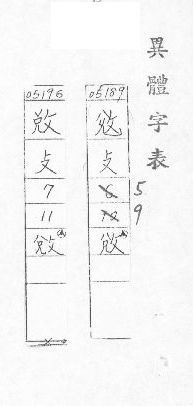 異體字表
05189
攴
6 5
10 9
05196
敚
攴
7
11
敚